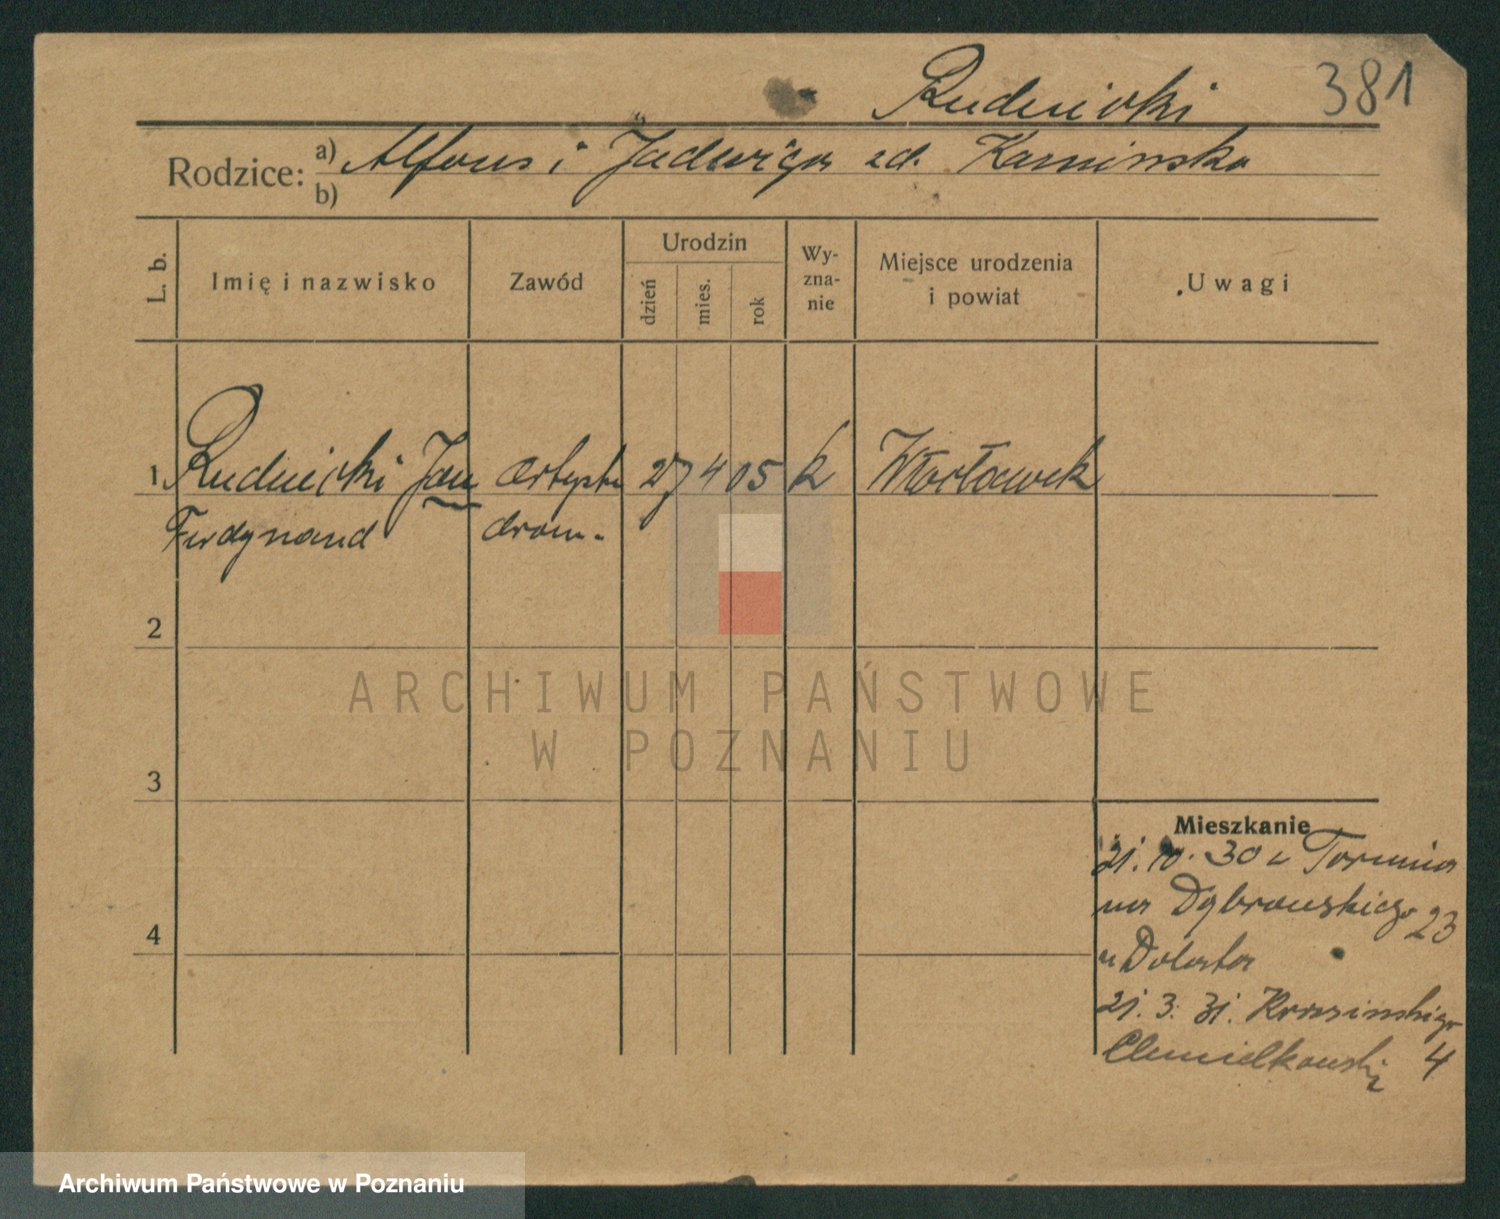 Rudnicki 381
Rodzice: a) Alfons i Jadwiga zd. Kaminska
b)
L. b. Imię i nazwisko Zawód Urodzin dzień mies. rok Wyznanie Miejsce urodzenia i powiat Uwagi
1 Rudnicki Jan artysta 27 4 05 k Włocławek
Ferdynand dram.
2
ARCHIWUM PAŃSTWOWE
W POZNANIU
3
Mieszkanie
21. 10. 30 z Torunia
na Dąbrowskiego 23
4
u Dolata
21. 3. 31.
4
Archiwum Państwowe w Poznaniu